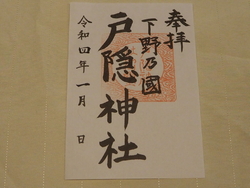 奉拝
下野乃國
戸隠神社
令和四年一月 日